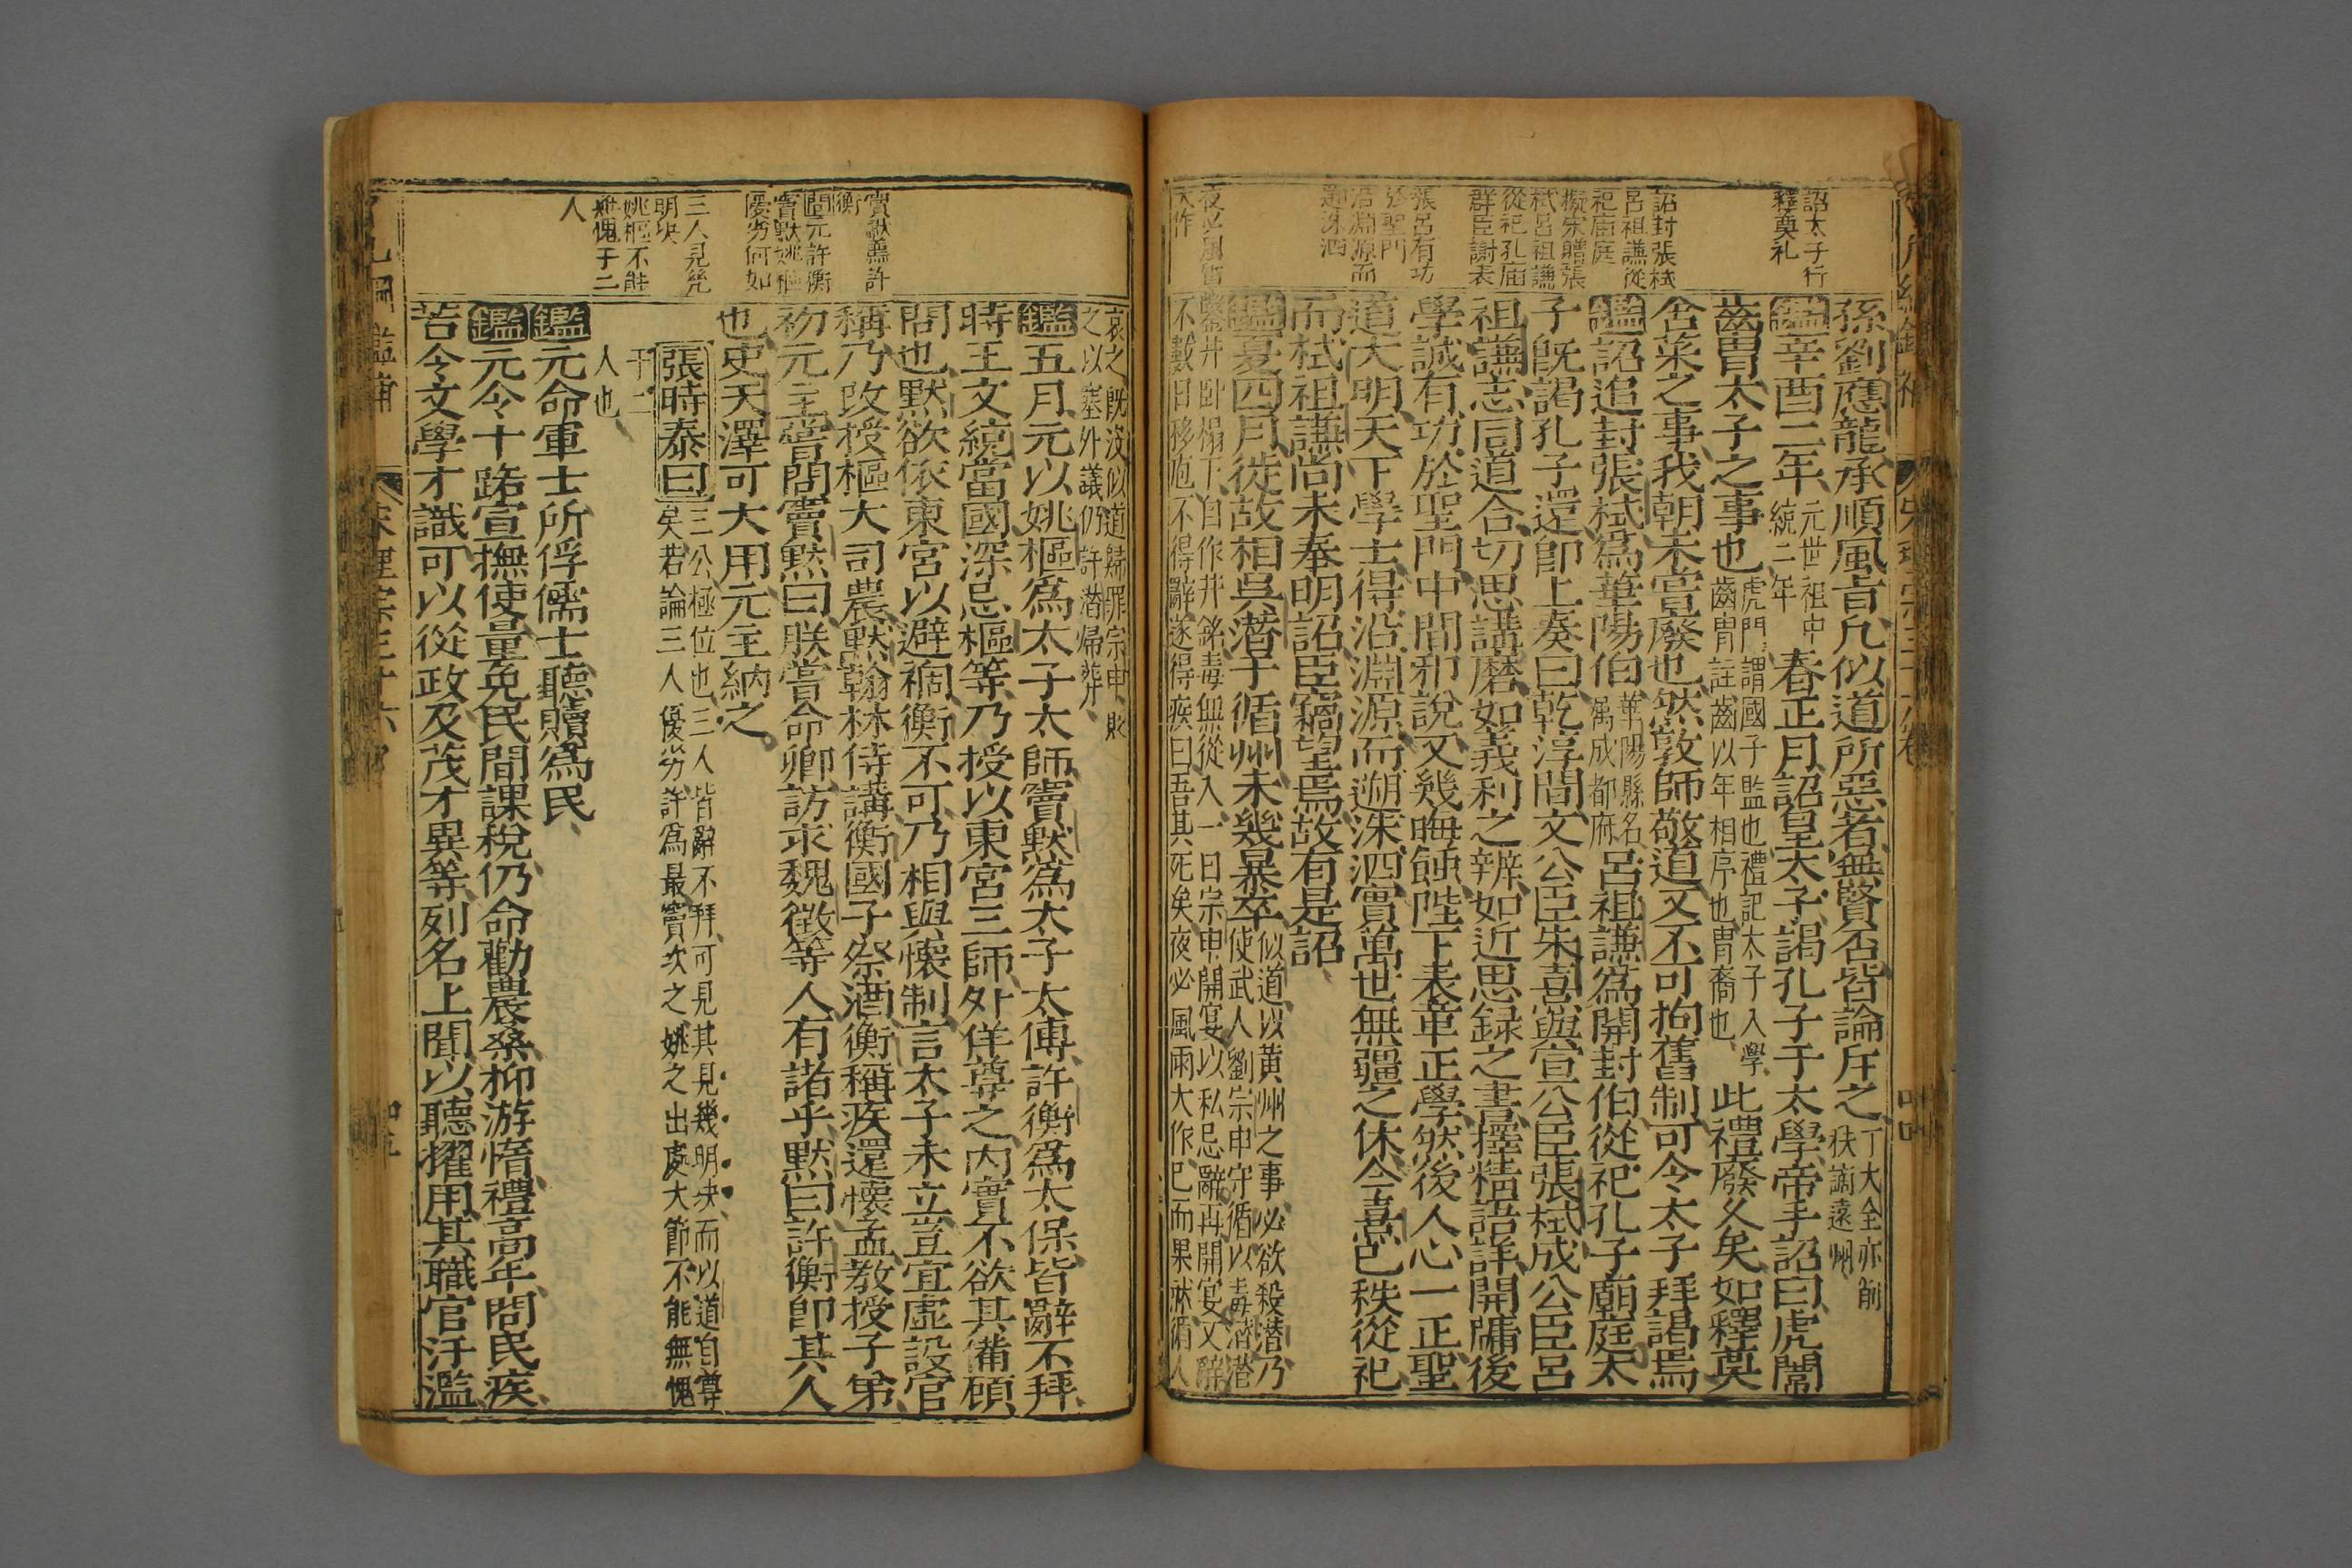 詔太子行
釋奠礼
詔封張栻
呂祖謙從
祀廟庭
擬宋贈張
栻呂祖謙
從祀孔庙
群臣謝表
張呂有功
於聖門
沿淵源而
遡洙泗
夜必風雷
大作
孫劉應龍承順風旨凡似道所惡者無賢否皆論斥之丁大全亦削
秩謫遠州
鑑辛酉二年元世祖中
統二年春正月詔皇太子謁孔子于太學帝手詔曰虎闈
齒胄太子之事也虎門謂國子監也禮記太子入學
齒胄註齒以年相序也胄裔也此禮廢久矣如釋奠
舍菜之事我朝未嘗廢也然敦師敬道又不可拘舊制可令太子拜謁焉
鑑詔追封張栻為華陽伯華陽縣名
属成都府呂祖謙為開封伯從祀孔子廟庭太
子旣謁孔子還卽上奏曰乾淳間文公臣朱熹與宣公臣張栻成公臣呂
祖謙志同道合切思講磨如義利之辨如近思録之書擇精語詳開牖後
學誠有功於聖門中間邪說又幾晦蝕陛下表章正學然後人心一正聖
道大明天下學士得沿淵源而遡洙泗實萬世無疆之休今熹已秩從祀
而栻祖謙尚未奉明詔臣竊望焉故有是詔
鑑夏四月徙故相吳潛于循州未幾暴卒似道以黃州之事必欲殺潛乃
使武人劉宗申守循以毒潛潛
鑿井臥榻下自作井銘毒無從入一日宗申開宴以私忌辭再開宴又辭
不數日移庖不得辭遂得疾曰吾其死矣夜必風雨大作已而果然循人
哀之旣沒似道歸罪宗申貶
之以塞外議仍許潛帰葬
竇默薦許
衡
問元許衡
竇默姚樞
優劣何如
三人見幾
明決
姚樞不能
無愧于二
人
鑑五月元以姚樞為太子太師竇默為太子太傅許衡為太保皆辭不拜
時王文統當國深忌樞等乃授以東宮三師外佯尊之內實不欲其備顧
問也默欲依東宮以避禍衡不可乃相與懐制言太子未立豈宜虛設官
稱乃改授樞大司農默翰林侍講衡國子祭酒衡稱疾還懐孟教授子弟
初元主嘗問竇默曰朕嘗命卿訪求魏徵等人有諸乎默曰許衡卽其人
也史天澤可大用元主納之
張時泰曰三公極位也三人皆辭不拜可見其見幾明決而以道自尊
矣若論三人優劣許為最竇次之姚之出處大節不能無愧
于二
人也
鑑元命軍士所俘儒士聽贖為民
鑑元令十路宣撫使量免民間課稅仍命勸農桑抑游惰禮高年問民疾
苦令文學才識可以從政及茂才異等列名上聞以聽擢用其職官汙濫